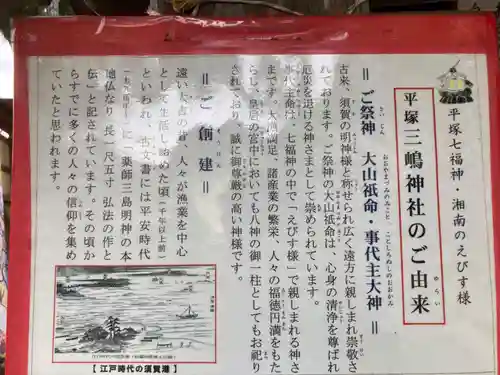 平塚七福神・湘南のえびす様
平塚三嶋神社のご由来
ゆらい
さいじん
おおやまづみのみこと
ことしろぬしのおおかみ
＝ご祭神 大山祇命・事代主大神＝
古来、須賀の明神様と称せられ広く遠方に親しまれ崇敬さ
れております。ご祭神の大山祇命は、心身の清浄を尊ばれ
厄災を退ける神さまとして崇められています。
主命は、七福神の中で「えびす様」で親しまれる神さ
まです。大漁満足、諸産業の繁栄、人々の福徳円満をもた
らし、皇居の宮中においても八神の御一柱としてもお祀り
されており、誠に御尊厳の高い神様です。
そうけん
＝ご創建＝
遠い太古の昔、人々が漁業を中心
として生活し始めた頃（千年以上前）
といわれ、古文書には平安時代
に「薬師三島明神の本
地佛なり 長一尺五寸 弘法の作と
伝」と記されています。その頃か
らすでに多くの人々の信仰を集め
ていたと思われます。
【江戸時代の須賀湊】